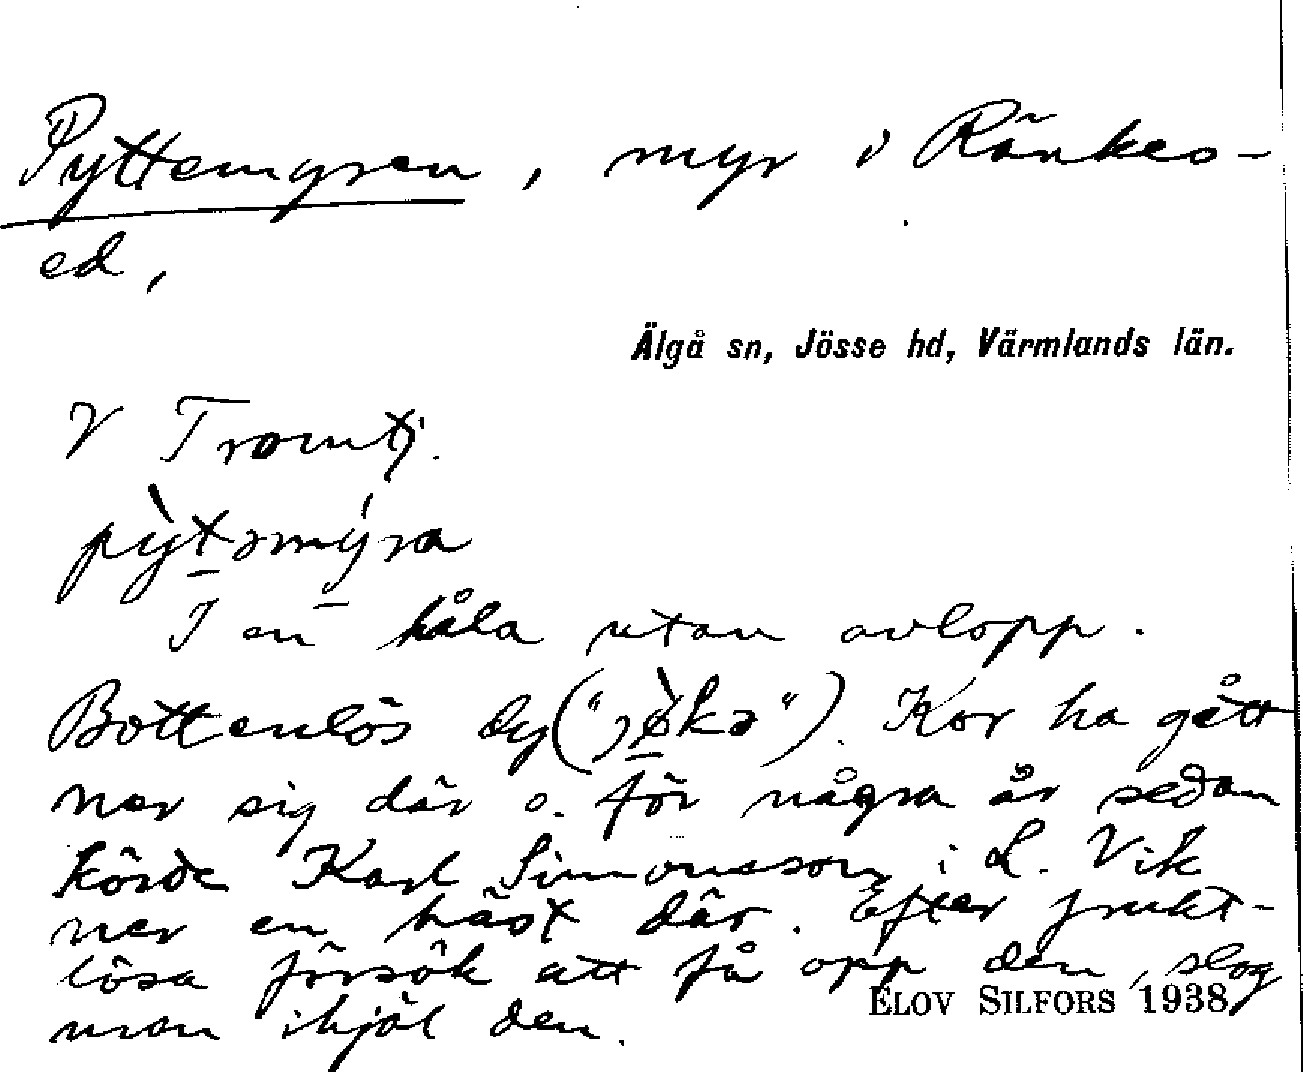 Pyttemyren, myr i Ränkes-
ed,
Älgå sn, Jösse hd, Värmlands län.
V Tromtj.
pỳtəmýra
I en håla utan avlopp.
Bottenlös dy ("jø̀kə"). Kor ha gått
ner sig där o. för några år sedan
körde Karl Simonsson i L. Vik
ner en häst där. Efter frukt-
lösa försök att få opp den, slog
man ihjäl den.
ELOV SILFORS 1938